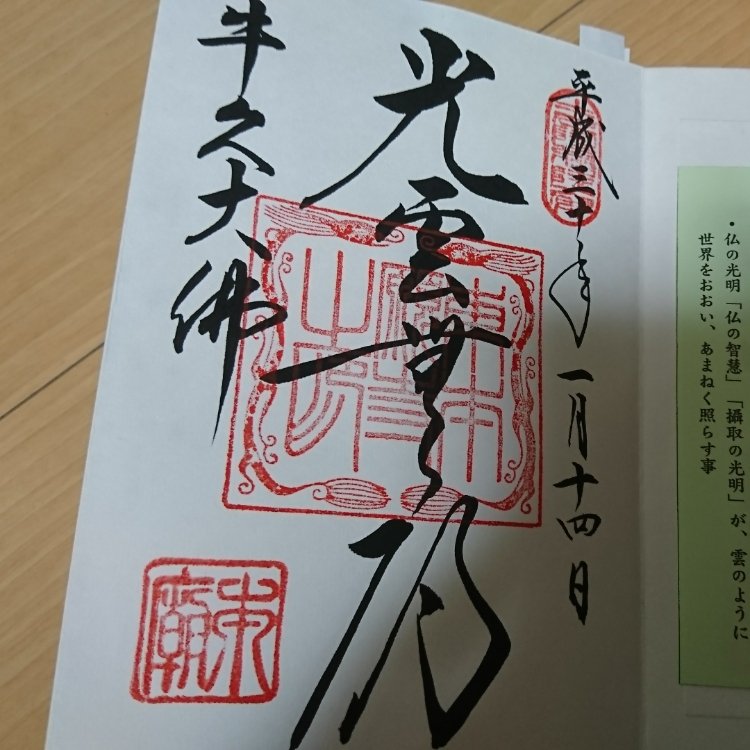 ・仏の光明「仏の智慧」「攝取の光明」が、雲のように
世界をおおい、あまねく照らす事
平成三十年一月十四日
光雲無碍
東本願寺之印
牛久大佛